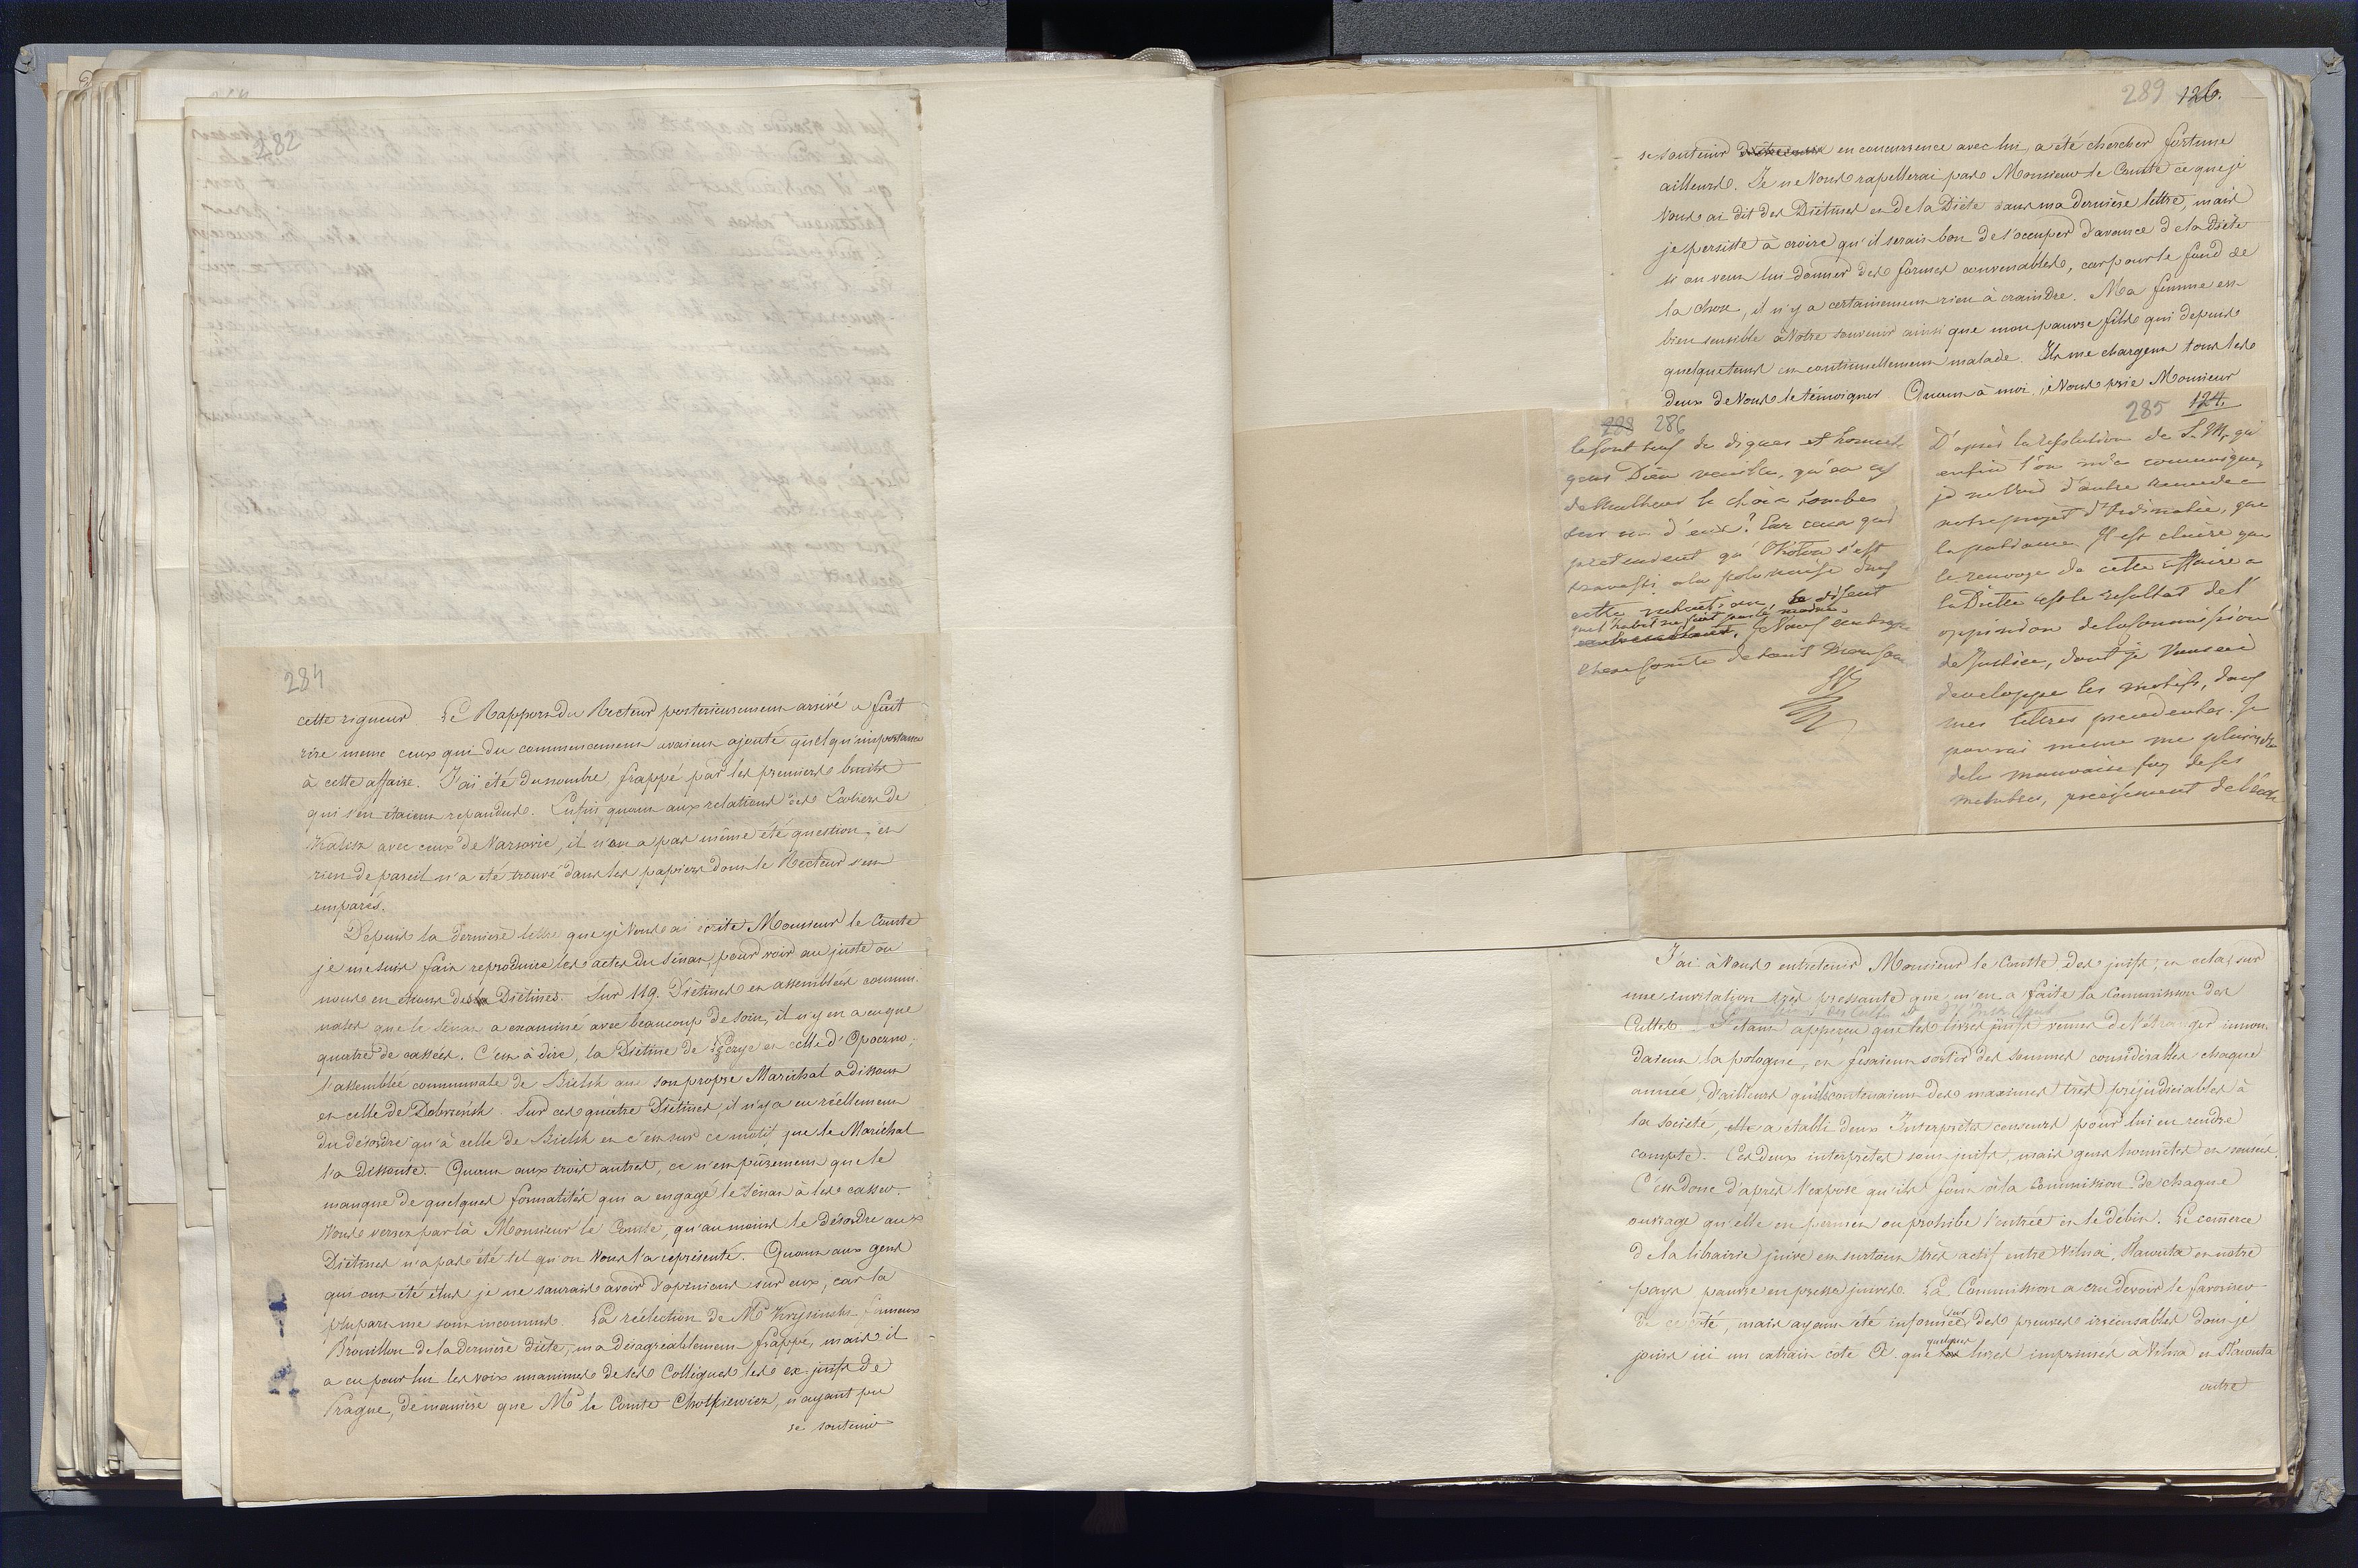 282
284
cette rigueur. Le Rapport du Recteur posterieurement arrivé a fait
rire meme ceux qui du commencement avaient ajouté quelqu'importance
à cette affaire. J'ai été du nombre, frappé par les premiers bruits
qui s'en étaient repandus. Enfin quant aux relations des Ecoliers de
Kalisz avec ceux de Varsovie, il n'en a pas même été question, et
rien de pareil n'a été trouvé dans les papiers dont le Recteur s'est
emparés.
Depuis la derniere lettre que je Vous ai écrite Monsieur le Comte
je me suis fait reproduire les actes du Sénat, pour voir au juste où
nous en étions des Diétines. Sur 119. Diétines et assemblées commu-
nales que le Sénat a examiné avec beaucoup de soin, il n'y en a eu que
quatre de cassées. C'est à dire, la Diétine de et celle d'Opoczno;
l'assemblée communale de Bielsk que son propre Maréchal a dissout
et celle de Dobrzeńsk. Sur ces quatre Diétines, il n'y a eu réellement
du désordre qu'à celle de Bielsk et c'est sur ce motif que le Maréchal
l'a dissoute. Quant aux trois autres, ce n'est purement que le
manque de quelques formalités qui a engagé le Sénat à les casser.
Vous verrez par là Monsieur le Comte, qu'au moins le désordre aux
Diétines n'a pas été tel qu'on Vous l'a représenté. Quant aux gens
qui ont été élus je ne saurais avoir d'opinions sur eux, car la
plupart me sont inconnus. La réélection de Mr Krysinski fameux
Brouillon de la derniere diète, m'a désagreablement frappé, mais il
a eu pour lui les voix unanimes de ses Collegues les ex-juifs de
Prague, de maniere que Mr le Comte Chotkiewicz, n'ayant pu
se soutenir
289 126.
se soutenir en concurrence avec lui, a été chercher fortune
ailleurs. Je ne Vous rapellerai pas Monsieur le Comte ce que je
Vous ai dit des Diétines et de la Diète dans ma dernière lettre, mais
je persiste à croire qu'il serait bon de s'occuper d'avance de la Diète
si on veut lui donner des formes convenables, car pour le fond de
la chose, il n'y a certainement rien à craindre. Ma femme est
bien sensible à Votre souvenir ainsi que mon pauvre fils qui depuis
quelque tems est continuellement malade. Ils me chargent tous les
deux de Vous le témoigner. Quant à moi, je Vous prie Monsieur
288 286
le sont tous de dignes et honnets
gens Dieu veuille, qu'en cas
de Malheur le choix tombes
sur un d'eux? Car ceux qui
pretendent qu' s'est
travesti a la polonaise dans
cette , se disent
que l'habit ne fait pas le moine.
Je Vous embrasse
cher Comte de tout mon
285 124.
D'après la resolution de S. M. qu'
enfin l'on m'a communiqué,
je ne Vois d'autre remede a
notre projet d'Ordinatie, que
la patience. Il est claire que
le renvoye de cette affaire a
la Diette est le resultat de l'
oppinion de la Commission
de Justice, dont je Vous ai
developpe les motifs, dans
mes lettres precedentes. Je
pourrai meme me plaindre
de la mauvaise foy de ses
membres, precisement de
J'ai à Vous entretenir Monsieur le Comte des juifs, et cela, sur
une invitation très pressante que m'en a faite la Commission des
Cultes. S'étant apperçu que les livres juifs venus de l'étranger innon-
daient la pologne, en fesaient sortir des sommes considérables chaque
année, d'ailleurs qu'ils contenaient des maximes très préjudiciables à
la société, elle a établi deux Interprètes censeurs pour lui en rendre
compte. Ces deux interprètes sont juifs, mais gens honnêtes et sensés.
C'est donc d'après l'exposé qu'ils font à la Commission de chaque
ouvrage qu'elle en permet ou prohibe l'entrée et le débit. Le comerce
de la librairie juive est surtout très actif entre Vilna, Slawuta et notre
pays pauvre en presses juives. La Commission a cru devoir le favoriser
de ce côté, mais ayant été informée sur des preuves irrécusables dont je
joins ici un extrait coté A. que quelques livres imprimés à Vilna et Slawuta
outre